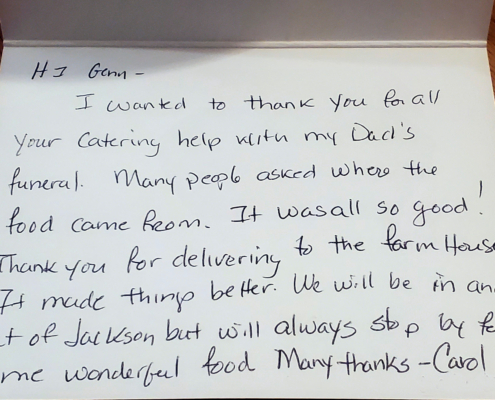 HI Genn -
I wanted to thank you for all
your catering help with my Dad's
funeral. Many people asked where the
food came from. It was all so good!
Thank you for delivering to the farm House
It made things better. We will be in an
t of Jackson but will always stop by fo
me wonderful food Many thanks - Carol